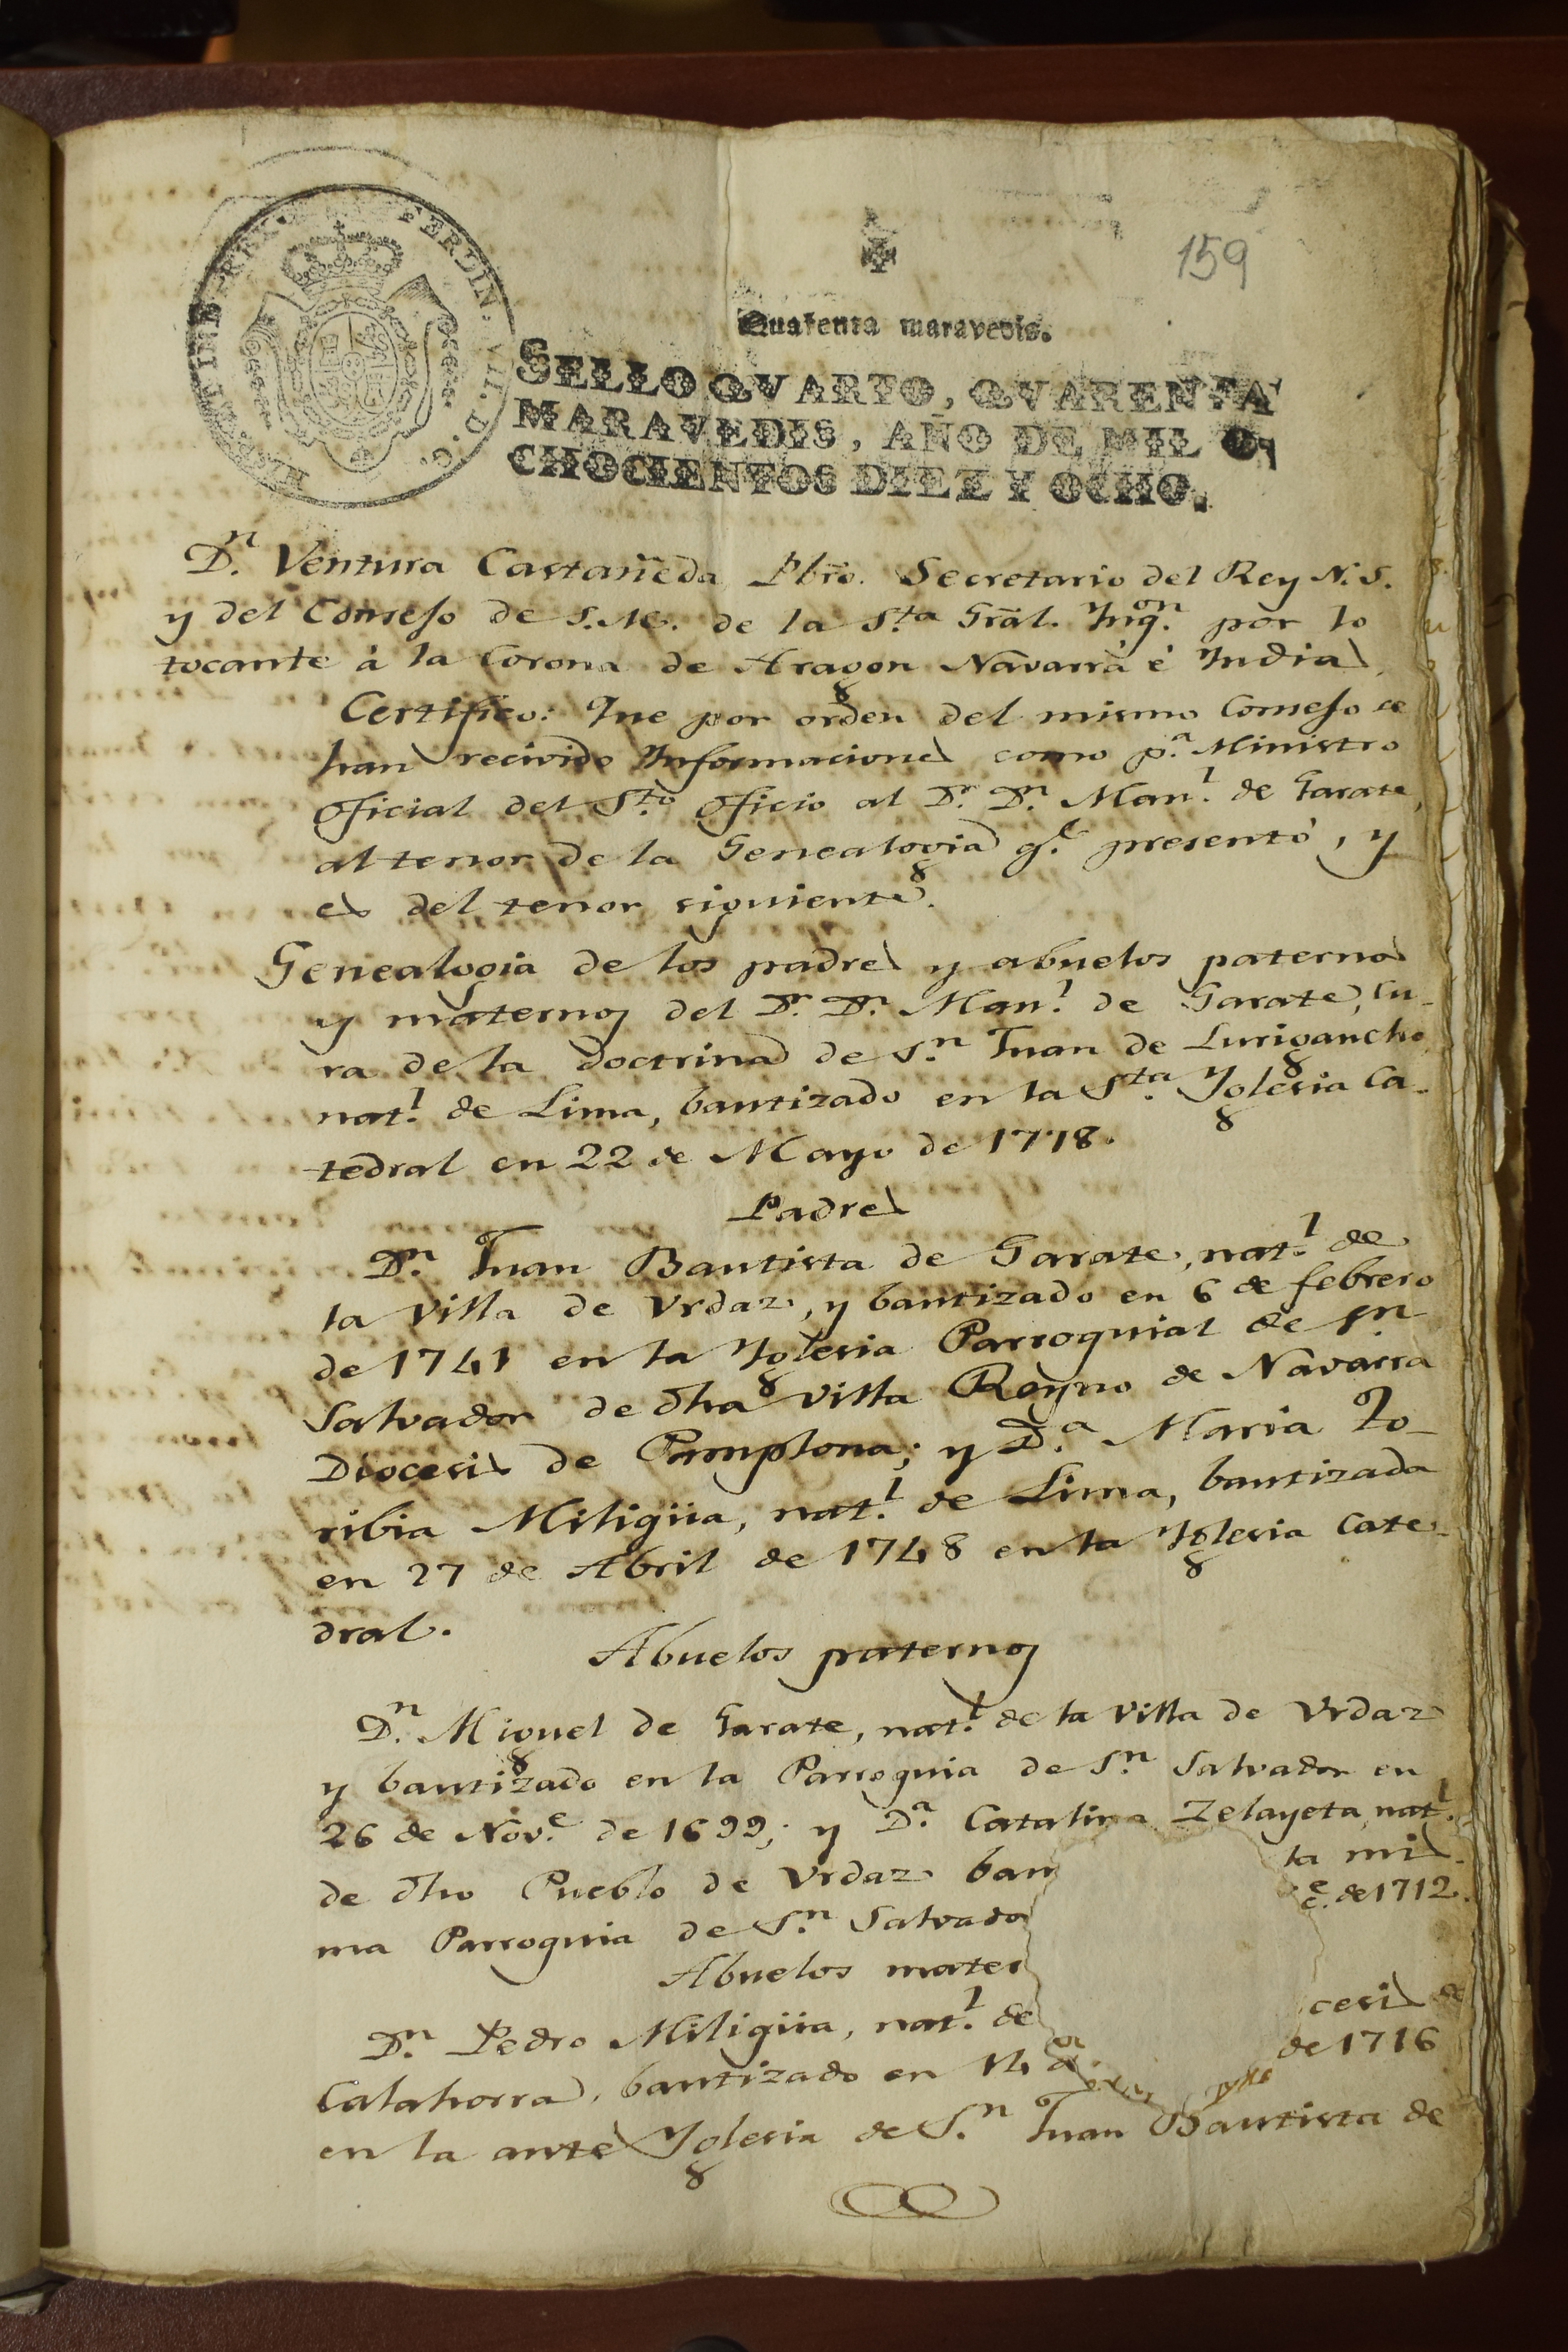 159
Quarenta maravedis.
SELLO QVARTO, QVARENTA
MARAVEDIS, AÑO DE MIL O-
CHOCIENTOS DIEZ Y OCHO.
FERDIN. VII. D. G.
Dn. Ventura Castañeda Pbro. Secretario del Rey N. S.
y del Consejo de S.M. de la Sta. Gral. Ynqon. por lo
tocante à la Corona de Aragon Navarra è Yndias
Certifico: Que por orden del mismo Consejo se
han recivido Informaciones como pa. Ministro
Oficial del Sto. Oficio al Dr. Dn. Manl. de Garate,
al tenor de la Genealogia qe. presentó, y
es del tenor siguiente.
Genealogia de los padres y abuelos paternos
y maternos del Dr. Dn. Manl. de Garate, Cu-
ra de la doctrina de Sn. Juan de Lurigancho
natl. de Lima, bautizado en la Sta. Yglesia Ca-
tedral en 22 de Mayo de 1778.
Padres
Dn. Juan Bautista de Garate, natl. de
la Villa de Vrdaz, y bautizado en 6 de febrero
de 1741 en la Yglesia Parroquial de Sn.
Salvador de dha Villa Reyno de Navarra
Diocesis de Pamplona; y Da. Maria To-
ribia Miligüa, natl. de Lima, bautizada
en 27 de Abril de 1748 en la Yglesia Cate-
dral.
Abuelos paternos
Dn. Miguel de Garate, natl. de la Villa de Vrdaz
y bautizado en la Parroquia de Sn. Salvador en
26 de Nove. de 1699; y Da. Catalina Zelayeta, natl.
de dho Pueblo de Vrdaz bau la mis-
ma Parroquia de Sn. Salvador e. de 1712.
Abuelos mater
Dn. Pedro Miligüa, natl. de cesis de
Calahorra, bautizado en 14 de de 1716
en la ante Yglesia de Sn. Juan Bautista de